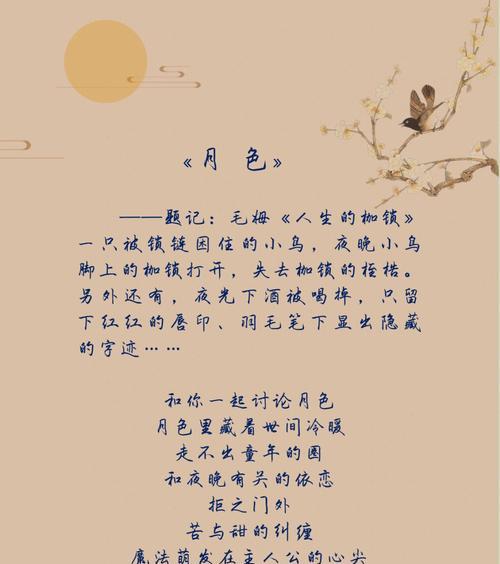 《月 色》
——题记：毛姆《人生的枷锁》
一只被锁链困住的小鸟，夜晚小鸟
脚上的枷锁打开，失去枷锁的桎梏。
另外还有，夜光下酒被喝掉，只留
下红红的唇印、羽毛笔下显出隐藏
的字迹……
和你一起讨论月色
月色里藏着世间冷暖
走不出童年的圈
和夜晚有关的依恋
拒之门外
苦与甜的纠缠
魔法萌发在主人公的心尖